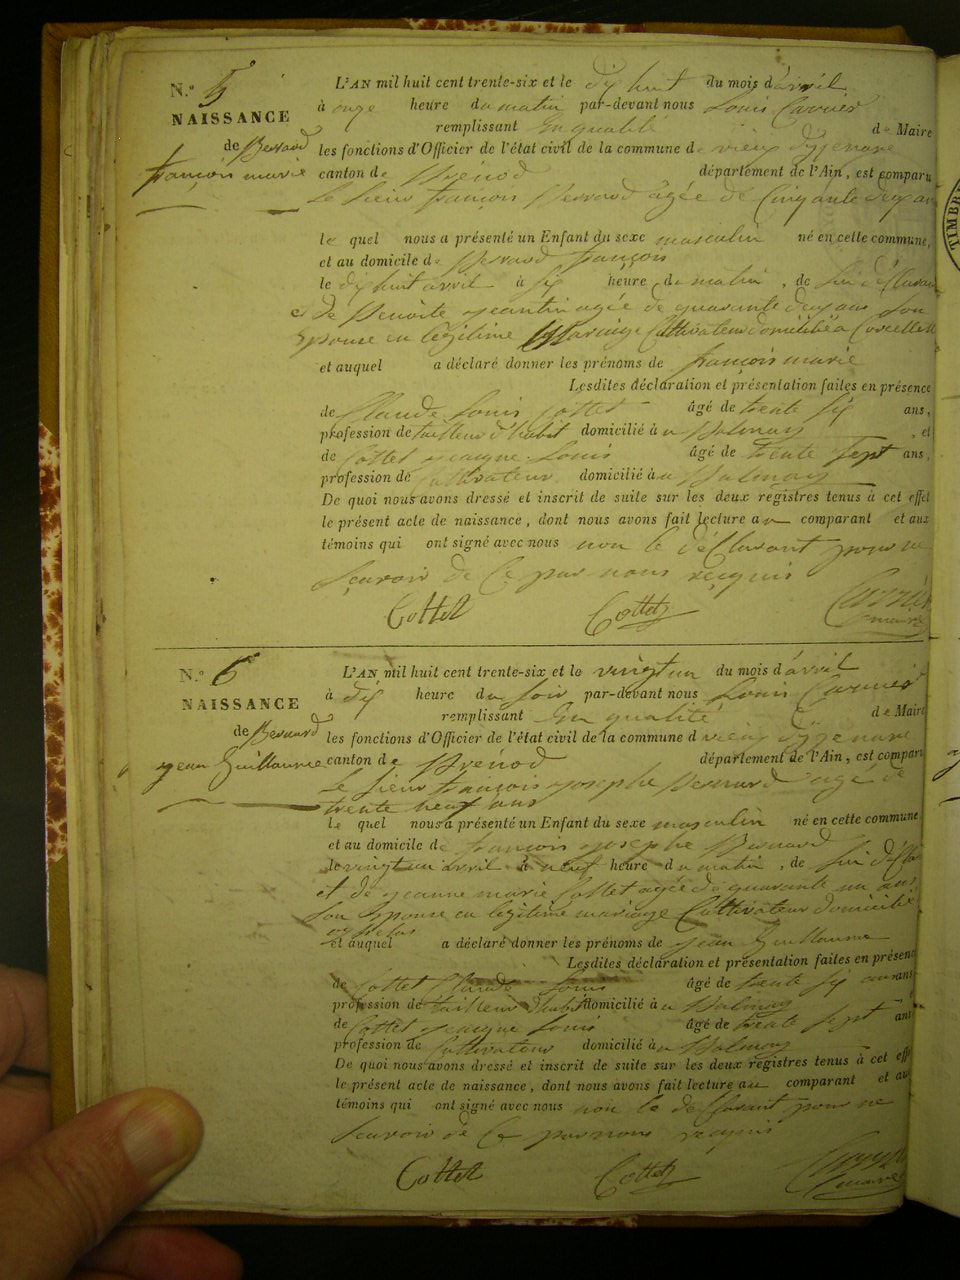 N.º 5
NAISSANCE
de Bernard
françois marie
L'AN mil huit cent trente-six et le dix huit du mois d'avril
à onze heure du matin par-devant nous Louis
remplissant En qualité de Maire
les fonctions d'Officier de l'état civil de la commune de vieux d'izenave
canton de Brénod département de l'Ain, est comparu
Le sieur françois Bernard âgée de Cinquante deux an
le quel nous a présenté un Enfant du sexe masculin né en cette commune,
et au domicile de Bernard françois
le dix huit avril à six heure du matin, de lui déClarant
et de Benoite agée de quarante deux ans son
Epouse en légitime Mariage Cultivateur domicilié a Corcelle
et auquel a déclaré donner les prénoms de françois marie
Lesdites déclaration et présentation faites en présence
de Claude Louis Cottet âgé de trente six ans,
profession de tailleur d'habit domicilié à a Balmay, et
de Cottet jacque Louis âgé de trente sept ans,
profession de Cultivateur domicilié à a Balmay
De quoi nous avons dressé et inscrit de suite sur les deux registres tenus à cet effet
le présent acte de naissance, dont nous avons fait lecture au comparant et aux
témoins qui ont signé avec nous non le déClarant pour ne
sçavoir de Ce par nous reçquis
Cottet Cottet
maire
N.º 6
NAISSANCE
de Bernard
jean Guillaume
L'AN mil huit cent trente-six et le vingt un du mois d'avril
à dix heure du soir par-devant nous Louis
remplissant En qualité de Maire
les fonctions d'Officier de l'état civil de la commune de vieux d'izenave
canton de Brénod département de l'Ain, est comparu
Le sieur françois josephe Bernard age de
trente neuf ans
le quel nous a présenté un Enfant du sexe masculin né en cette commune
et au domicile de françois josephe Bernard
le vingt un avril à neuf heure du matin, de lui décla
et de jeanne marie Cottet agée de quarante un ans
son Epouse en légitime mariage Cultivateur domicilié
et auquel a déclaré donner les prénoms de jean Guillaume
Lesdites déclaration et présentation faites en présence
de Cottet Claude Louis âgé de trente six ans
profession de tailleur d'habit domicilié à a Balmay
de Cottet jacque Louis âgé de trente sept ans
profession de Cultivateur domicilié à a Balmay
De quoi nous avons dressé et inscrit de suite sur les deux registres tenus à cet eff
le présent acte de naissance, dont nous avons fait lecture au comparant et au
témoins qui ont signé avec nous non le déClarant pour ne
sçavoir de Ce par nous reçquis
Cottet Cottet
maire
TIMBRE